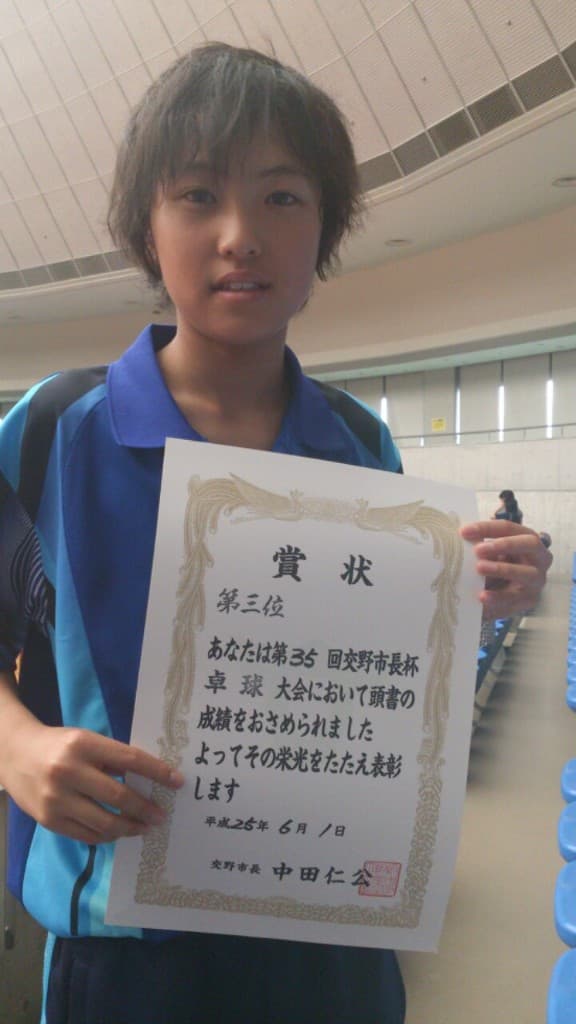 賞状
第三位
あなたは第35回交野市長杯
卓球大会において頭書の
成績をおさめられました
よってその栄光をたたえ表彰
します
平成25年6月1日
交野市長 中田仁公